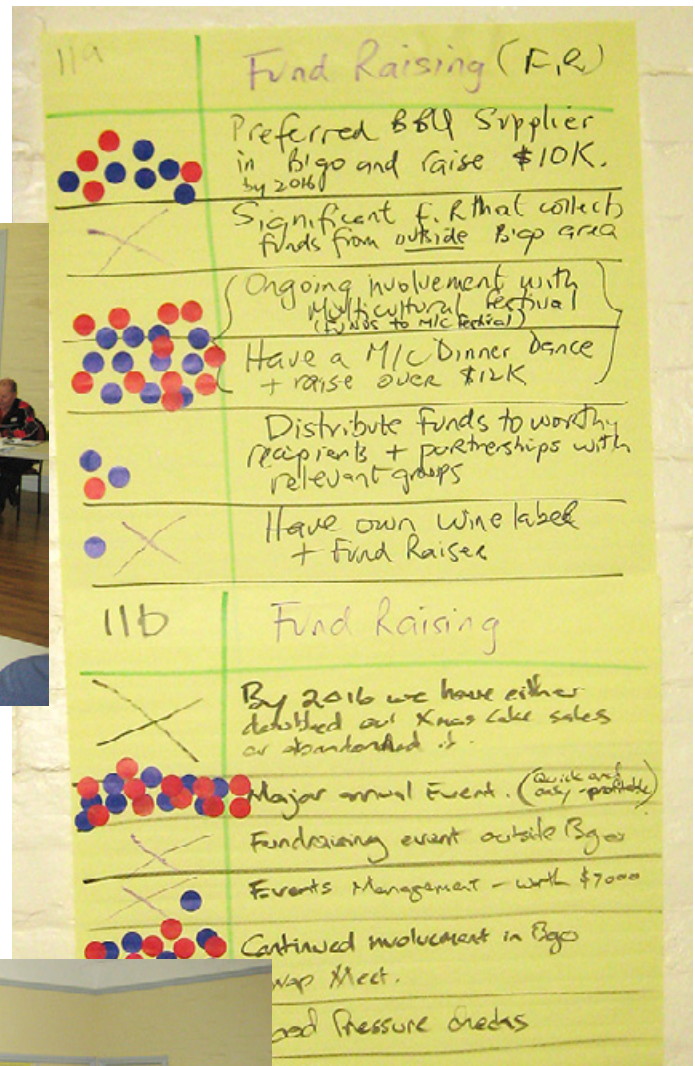 11a Fund Raising (F.R)
Preferred BBQ Supplier
in B'go and raise $10K.
by 2016
Significant F.R that collects
funds from outside B'go area
Ongoing involvement with
Multicultural Festival
(Funds to M/C Festival)
Have a M/C Dinner Dance
+ raise over $12K
Distribute Funds to worthy
recipients + partnerships with
relevant groups
Have own wine label
+ Fund Raiser
11b Fund Raising
By 2016 we have either
doubled our Xmas Cake sales
or abandoned it.
Major annual Event. (Quick and
easy - profitable)
Fundraising event outside Bgo
Events Management - worth $7000
Continued involvement in Bgo
wap Meet.
ood Pressure checks